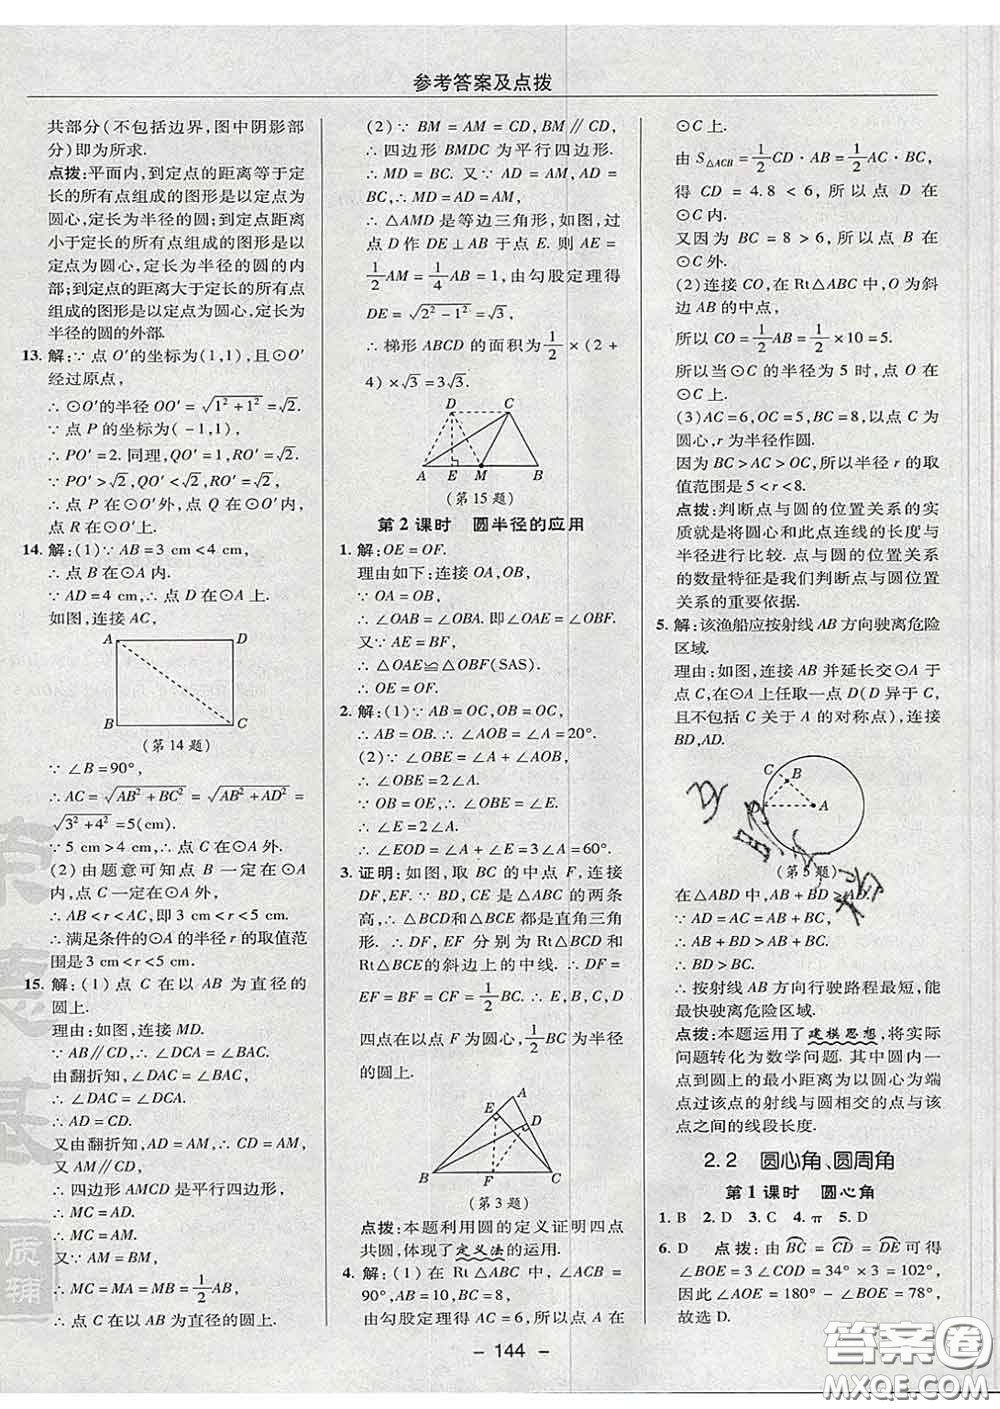 参考答案及点拨
共部分(不包括边界,图中阴影部
分)即为所求.
点拨:平面内,到定点的距离等于定
长的所有点组成的图形是以定点为
圆心,定长为半径的圆;到定点距离
小于定长的所有点组成的图形是以
定点为圆心,定长为半径的圆的内
部;到定点的距离大于定长的所有点
组成的图形是以定点为圆心,定长为
半径的圆的外部.
13. 解:∵点O′的坐标为(1,1),且⊙O′
经过原点,
∴⊙O′的半径OO′=√(1²+1²)=√2.
∵点P的坐标为(-1,1),
∴PO′=2. 同理,QO′=1,RO′=√2.
∵PO′>√2,QO′<√2,RO′=√2,
∴点P在⊙O′外,点Q在⊙O′内,
点R在⊙O′上.
14. 解:(1)∵AB=3 cm<4 cm,
∴点B在⊙A内.
∵AD=4 cm,∴点D在⊙A上.
如图,连接AC,
A D
B C
(第14题)
∵∠B=90°,
∴AC=√(AB²+BC²)=√(AB²+AD²)=
√(3²+4²)=5(cm).
∵5 cm>4 cm,∴点C在⊙A外.
(2)由题意可知点B一定在⊙A
内,点C一定在⊙A外,
∴AB<r<AC,即3 cm<r<5 cm.
∴满足条件的⊙A的半径r的取值范
围是3 cm<r<5 cm.
15. 解:(1)点C在以AB为直径的
圆上.
理由:如图,连接MD.
∵AB∥CD,∴∠DCA=∠BAC.
由翻折知,∠DAC=∠BAC,
∴∠DAC=∠DCA.
∴AD=CD.
又由翻折知,AD=AM,∴CD=AM.
又∵AM∥CD,
∴四边形AMCD是平行四边形.
∴MC=AD.
∴MC=AM.
又∵AM=BM,
∴MC=MA=MB=1/2AB,
∴点C在以AB为直径的圆上.
(2)∵BM=AM=CD,BM∥CD,
∴四边形BMDC为平行四边形.
∴MD=BC. 又∵AD=BC,
∴MD=AD=AM.
∴△AMD是等边三角形,如图,过
点D作DE⊥AB于点E. 则AE=
1/2AM=1/4AB=1,由勾股定理得
DE=√(2²-1²)=√3,
∴梯形ABCD的面积为1/2×(2+
4)×√3=3√3.
D C
A E M B
(第15题)
第2课时 圆半径的应用
1. 解:OE=OF.
理由如下:连接OA,OB,
∵OA=OB,
∴∠OAB=∠OBA. 即∠OAE=∠OBF.
又∵AE=BF,
∴△OAE≌△OBF(SAS).
∴OE=OF.
2. 解:(1)∵AB=OC,OB=OC,
∴AB=OB. ∴∠AOB=∠A=20°.
(2)∵∠OBE=∠A+∠AOB,
∴∠OBE=2∠A.
∵OB=OE,∴∠OBE=∠E.
∴∠E=2∠A.
∴∠EOD=∠A+∠E=3∠A=60°.
3. 证明:如图,取BC的中点F,连接
DF,EF. ∵BD,CE是△ABC的两条
高,∴△BCD和△BCE都是直角三角
形. ∴DF,EF分别为Rt△BCD和
Rt△BCE的斜边上的中线. ∴DF=
EF=BF=CF=1/2BC. ∴E,B,C,D
四点在以点F为圆心,1/2BC为半径
的圆上.
A
E D
B F C
(第3题)
点拨:本题利用圆的定义证明四点
共圆,体现了定义法的运用.
4. 解:(1)在Rt△ABC中,∠ACB=
90°,AB=10,BC=8,
由勾股定理得AC=6,所以点A在
⊙C上.
由S△ACB=1/2CD·AB=1/2AC·BC,
得CD=4.8<6,所以点D在
⊙C内.
又因为BC=8>6,所以点B在
⊙C外.
(2)连接CO,在Rt△ABC中,O为斜
边AB的中点,
所以CO=1/2AB=1/2×10=5.
所以当⊙C的半径为5时,点O在
⊙C上.
(3)AC=6,OC=5,BC=8,以点C为
圆心,r为半径作圆.
因为BC>AC>OC,所以半径r的取
值范围是5<r<8.
点拨:判断点与圆的位置关系的实
质就是将圆心和此点连线的长度与
半径进行比较. 点与圆的位置关系
的数量特征是我们判断点与圆位置
关系的重要依据.
5. 解:该渔船应按射线AB方向驶离危险
区域.
理由:如图,连接AB并延长交⊙A于
点C,在⊙A上任取一点D(D异于C,
且不包括C关于A的对称点),连接
BD,AD.
C B
A
(第5题)
在△ABD中,AB+BD>AD.
∵AD=AC=AB+BC,
∴AB+BD>AB+BC.
∴BD>BC.
∴按射线AB方向行驶路程最短,能
最快驶离危险区域.
点拨:本题运用了建模思想,将实际
问题转化为数学问题. 其中圆内一
点到圆上的最小距离为以圆心为端
点过该点的射线与圆相交的点与该
点之间的线段长度.
2.2 圆心角、圆周角
第1课时 圆心角
1. B 2. D 3. C 4. π 5. D
6. D 点拨:由BC=CD=DE可得
∠BOE=3∠COD=34°×3=102°,
因此∠AOE=180°-∠BOE=78°,
故选D.
- 144 -
质辅
答案圈
MXQE.COM